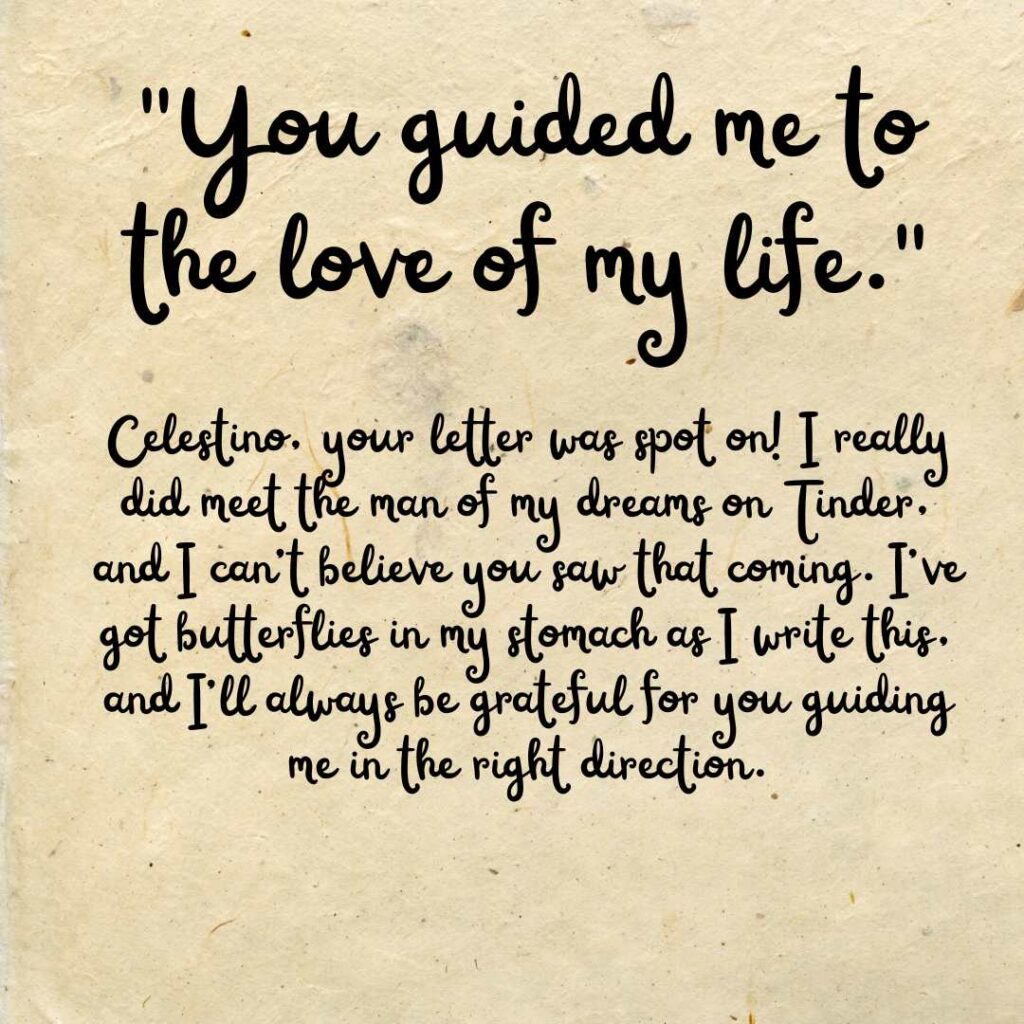 "You guided me to
the love of my life."
Celestino, your letter was spot on! I really
did meet the man of my dreams on Tinder,
and I can't believe you saw that coming. I've
got butterflies in my stomach as I write this,
and I'll always be grateful for you guiding
me in the right direction.